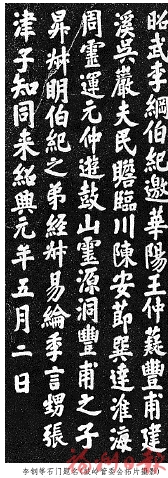 昭武李綱伯紀邀華陽王仲薿豐甫建
溪吳巖夫民瞻臨川陳安節巽達淮海
周靈運元仲遊鼓山靈源洞豐甫之子
昇叔明伯紀之弟經叔易綸季言甥張
津子知同來紹興元年五月二日
李纲等石门题名
福州日报